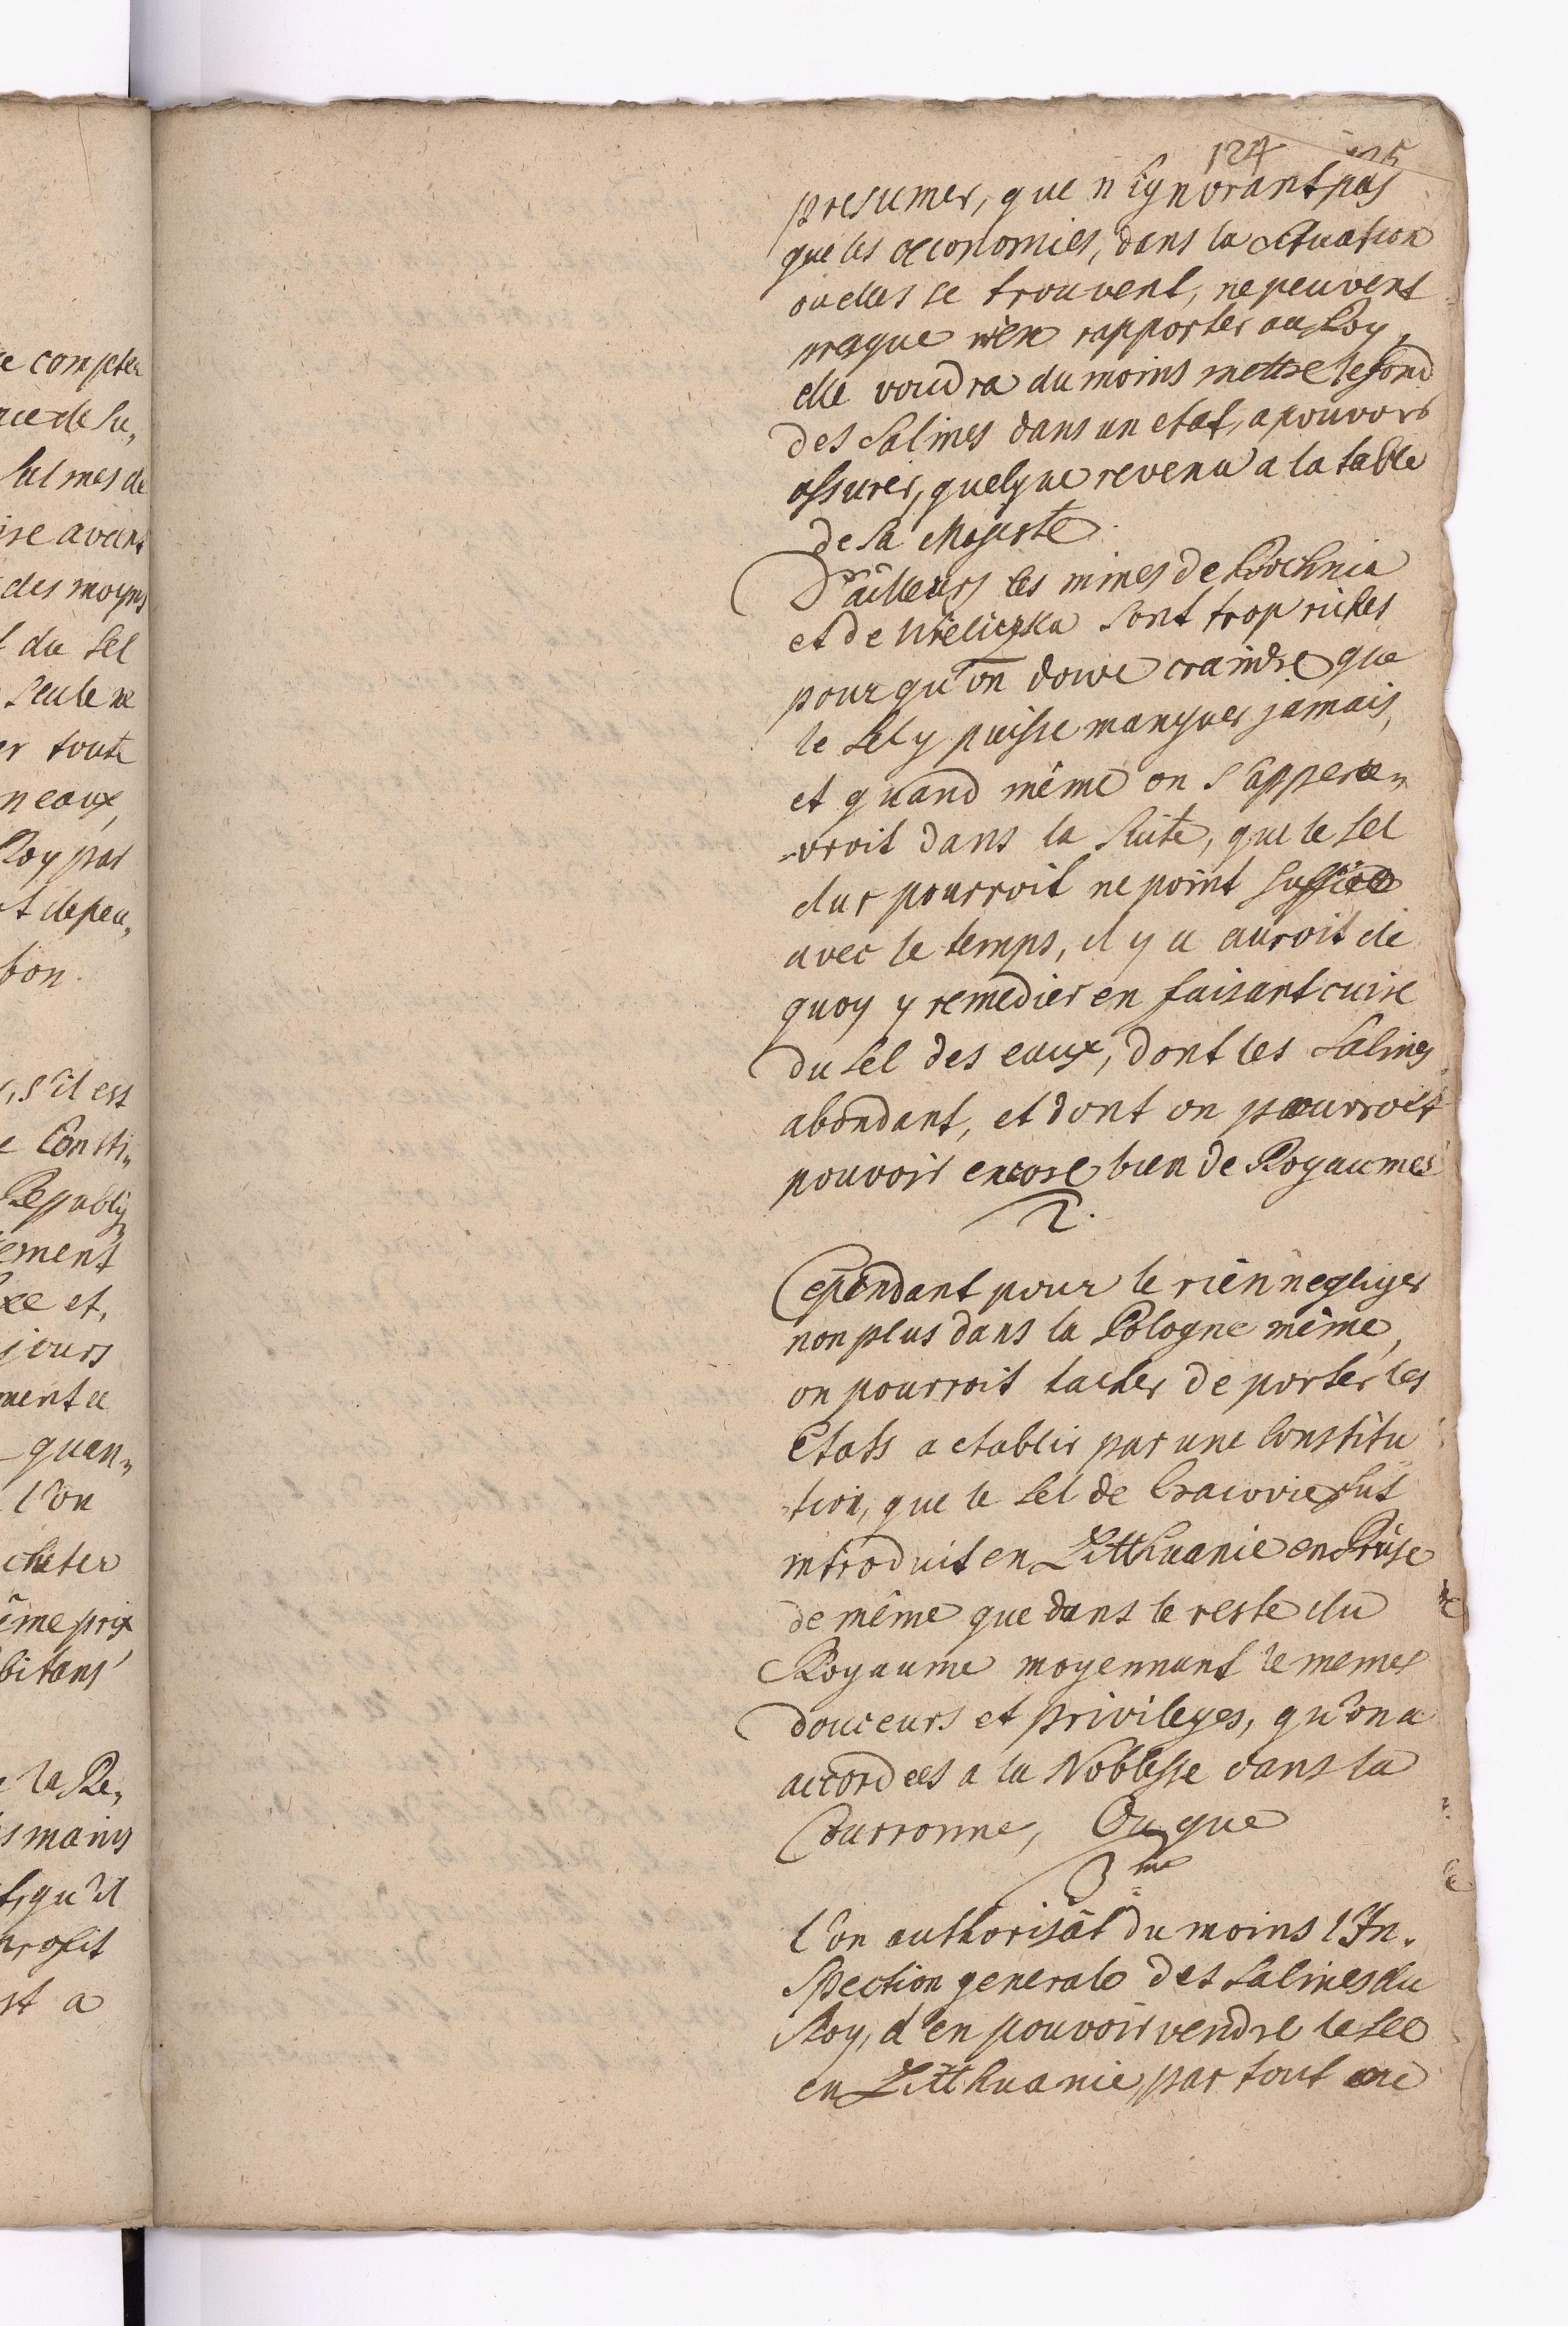 e compter
nce de Su„
Salines de
ire avant
des moyns
du Sel
Seule ne
er toute
neaux,
Roy par
t depeu„
bon.
, s'il est
e Consti„
Republiq
ement
xe et,
jours
ment a
quan„
l'on
cheter
ême prix
bitans
la Re„
s mains
t, qu'il
profit
st a
124 125
presumer, que n'ignorant pas
que les œconomies, dans la Situation
ou elles se trouvent, ne peuvent
presque rien rapporter au Roy,
elle voudra du moins mettre le fond
des Salines dans un etat, a pouvoir
assurer, quelque revenu a la table
de Sa Majesté.
D'ailleurs les mines de Bochnia
et de Wieliczka sont trop riches
pour qu'on doive craindre que
le Sel y puisse manquer jamais,
et quand même on s'apperce„
-vroit dans la Suite, que le Sel
dur pourroit ne point suffire
avec le temps, il y a auroit de
quoy y remedier en faisant cuire
du Sel des eaux, dont les Salines
abondant, et dont on pourroit
pouvoir encore bien de Royaumes
2.
Cependant pour le rien negliger
non plus dans la Pologne même,
on pourroit tacher de porter les
Etats a etablir par une Constitu
-tion, que le Sel de Cracovie fut
introduit en Litthuanie en Pruse
de même que dans le reste du
Royaume moyennant le memes
douceurs et privileges, qu'on a
accordees a la Noblesse dans la
Courronne, Ou que
3me
l'on authorisât du moins l'In„
Spection generale des Salines du
Roy, d'en pouvoir vendre le Sel
en Litthuanie par tout ou